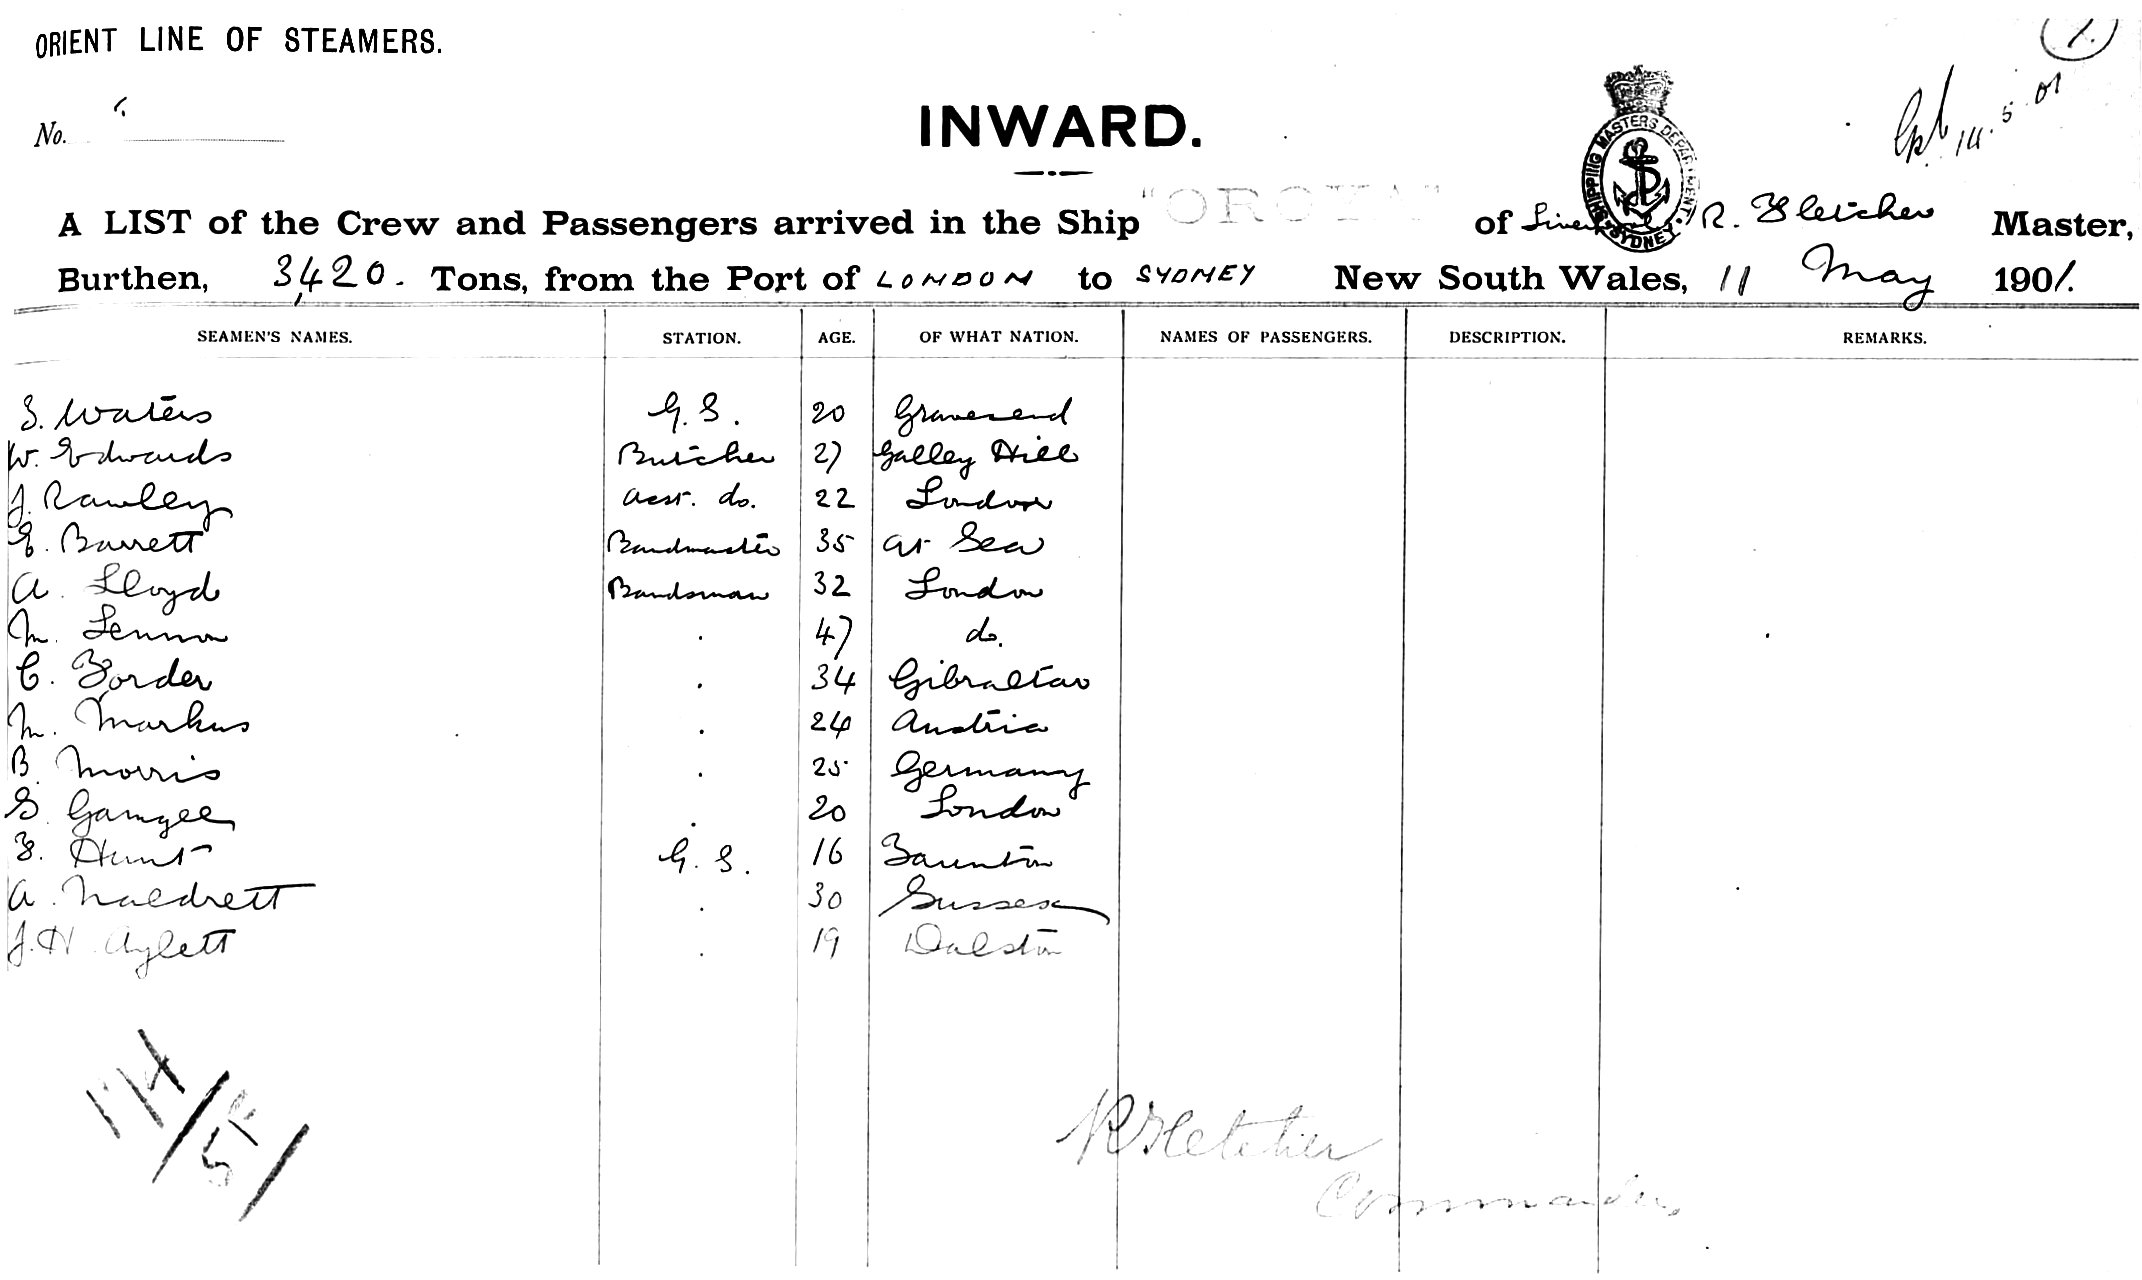 ORIENT LINE OF STEAMERS.
1.
No.
INWARD.
14. 5. 01
SHIPPING MASTERS DEPARTMENT. SYDNEY.
A LIST of the Crew and Passengers arrived in the Ship "OROYA" of R. Fletcher Master,
Burthen, 3,420. Tons, from the Port of LONDON to SYDNEY New South Wales, 11 May 1901.
SEAMEN'S NAMES. STATION. AGE. OF WHAT NATION. NAMES OF PASSENGERS. DESCRIPTION. REMARKS.
S. Waters G. S. 20 Gravesend
W. Edwards Butcher 27 Galley Hill
J. Rawley asst. do. 22 London
E. Barrett Bandmaster 35 at Sea
A. Lloyd Bandsman 32 London
M. Lennon . 47 do.
C. Forder . 34 Gibraltar
M. Markus . 24 Austria
B. Morris . 25 Germany
S. Gamgee . 20 London
F. Hunt G. S. 16 Taunton
A. Naldrett . 30 Sussex
J. H. Aylett . 19 Dalston
R Fletcher
Commander